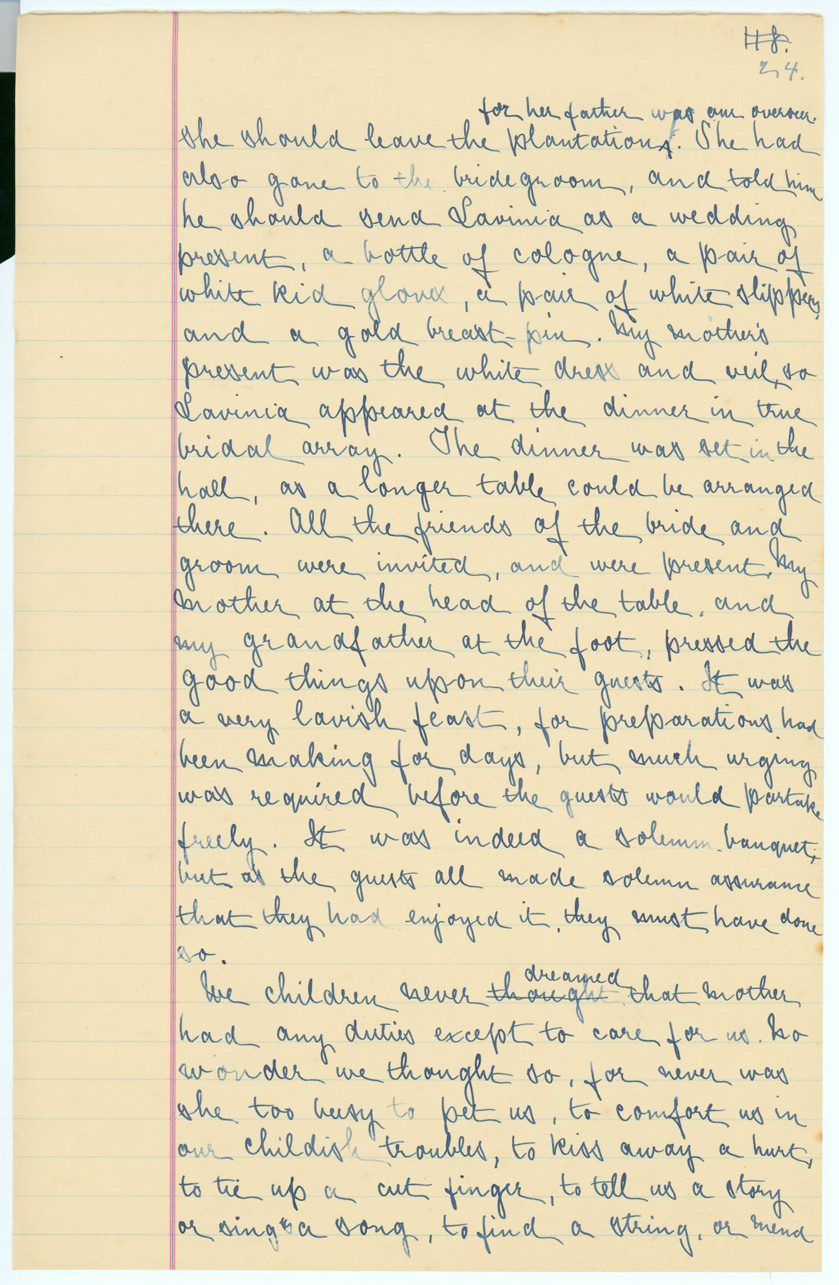 118.
24.
for her father was our overseer.
she should leave the plantation. She had
also gone to the bridegroom, and told him
he should send Lavinia as a wedding
present, a bottle of cologne, a pair of
white kid gloves, a pair of white slippers,
and a gold breast-pin. My mother's
present was the white dress and veil, so
Lavinia appeared at the dinner in true
bridal array. The dinner was set in the
hall, as a longer table could be arranged
there. All the friends of the bride and
groom were invited, and were present. My
mother at the head of the table, and
my grandfather at the foot, pressed the
good things upon their guests. It was
a very lavish feast, for preparations had
been making for days, but much urging
was required before the guests would partake
freely. It was indeed a solemn banquet;
but as the guests all made solemn assurance
that they had enjoyed it, they must have done
so.
dreamed
We children never thought that mother
had any duties except to care for us. No
wonder we thought so, for never was
she too busy to pet us, to comfort us in
our childish troubles, to kiss away a hurt,
to tie up a cut finger, to tell us a story
or sing us a song, to find a string, or mend